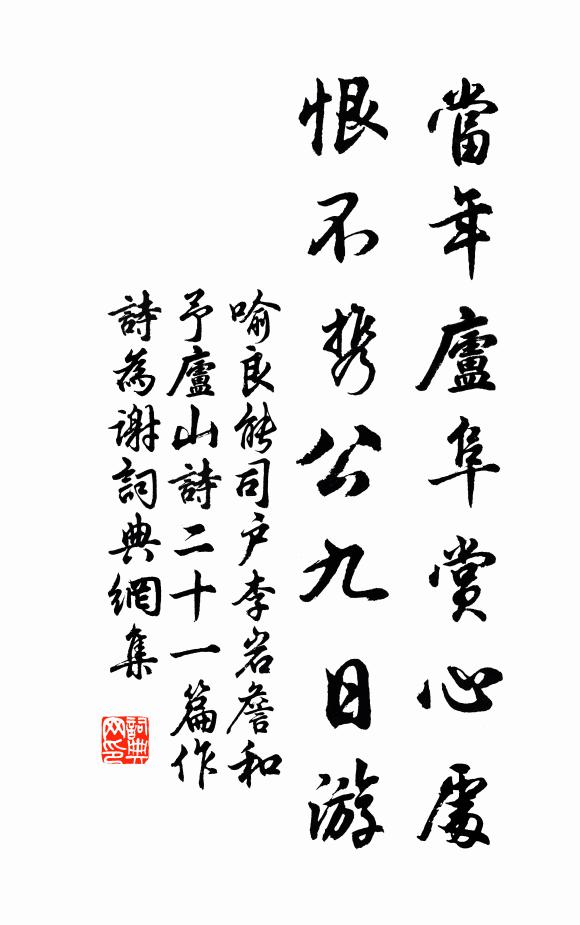 當年廬阜賞心處
恨不携公九日游
喻良能司户李岩詹和
予廬山詩二十一篇作
詩為谢詞典網集
詞典网印